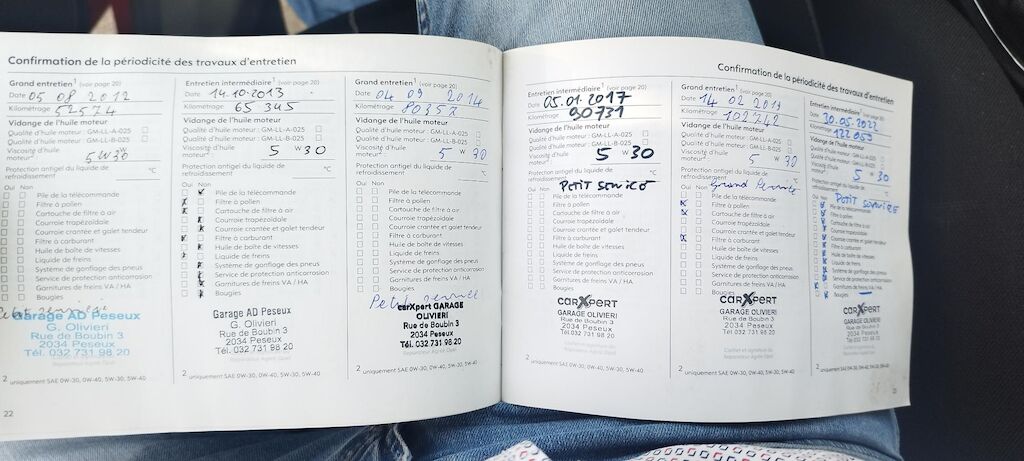 Confirmation de la périodicité des travaux d'entretien
Grand entretien¹ (voir page 20)
Date 05 08 2012
Kilométrage 52574
Vidange de l'huile moteur
Qualité d'huile moteur : GM-LL-A-025
Qualité d'huile moteur : GM-LL-B-025
Viscosité d'huile
moteur² 5 W 30
Protection antigel du liquide de
refroidissement °C
Oui Non
Pile de la télécommande
Filtre à pollen
Cartouche de filtre à air
Courroie trapézoïdale
Courroie crantée et galet tendeur
Filtre à carburant
Huile de boîte de vitesses
Liquide de freins
Système de gonflage des pneus
Service de protection anticorrosion
Garnitures de freins VA / HA
Bougies
Garage AD Peseux
G. Olivieri
Rue de Boubin 3
2034 Peseux
Tél. 032 731 98 20
² uniquement SAE 0W-30, 0W-40, 5W-30, 5W-40
22
Entretien intermédiaire¹ (voir page 20)
Date 14.10.2013
Kilométrage 65 345
Vidange de l'huile moteur
Qualité d'huile moteur : GM-LL-A-025
Qualité d'huile moteur : GM-LL-B-025
Viscosité d'huile
moteur² 5 W 30
Protection antigel du liquide de
refroidissement °C
Oui Non
Pile de la télécommande
Filtre à pollen
Cartouche de filtre à air
Courroie trapézoïdale
Courroie crantée et galet tendeur
Filtre à carburant
Huile de boîte de vitesses
Liquide de freins
Système de gonflage des pneus
Service de protection anticorrosion
Garnitures de freins VA / HA
Bougies
Garage AD Peseux
G. Olivieri
Rue de Boubin 3
2034 Peseux
Tél. 032 731 98 20
² uniquement SAE 0W-30, 0W-40, 5W-30, 5W-40
Grand entretien¹ (voir page 20)
Date 04 09 2014
Kilométrage
Vidange de l'huile moteur
Qualité d'huile moteur : GM-LL-A-025
Qualité d'huile moteur : GM-LL-B-025
Viscosité d'huile
moteur² 5 W 30
Protection antigel du liquide de
refroidissement °C
Oui Non
Pile de la télécommande
Filtre à pollen
Cartouche de filtre à air
Courroie trapézoïdale
Courroie crantée et galet tendeur
Filtre à carburant
Huile de boîte de vitesses
Liquide de freins
Système de gonflage des pneus
Service de protection anticorrosion
Garnitures de freins VA / HA
Bougies
Petit service
carXpert GARAGE
OLIVIERI
Rue de Boubin 3
2034 Peseux
Tél. 032 731 98 20
Réparateur Agréé Opel
² uniquement SAE 0W-30, 0W-40, 5W-30, 5W-40
Confirmation de la périodicité des travaux d'entretien
Entretien intermédiaire¹ (voir page 20)
Date 05.01.2017
Kilométrage 90731
Vidange de l'huile moteur
Qualité d'huile moteur : GM-LL-A-025
Qualité d'huile moteur : GM-LL-B-025
Viscosité d'huile
moteur² 5 W 30
Protection antigel du liquide de
refroidissement °C
PETIT SERVICE
Oui Non
Pile de la télécommande
Filtre à pollen
Cartouche de filtre à air
Courroie trapézoïdale
Courroie crantée et galet tendeur
Filtre à carburant
Huile de boîte de vitesses
Liquide de freins
Système de gonflage des pneus
Service de protection anticorrosion
Garnitures de freins VA / HA
Bougies
carXpert
GARAGE
OLIVIERI
Rue de Boubin 3
2034 Peseux
Tél. 032 731 98 20
² uniquement SAE 0W-30, 0W-40, 5W-30, 5W-40
Grand entretien¹ (voir page 20)
Date 14 02 2019
Kilométrage 102242
Vidange de l'huile moteur
Qualité d'huile moteur : GM-LL-A-025
Qualité d'huile moteur : GM-LL-B-025
Viscosité d'huile
moteur² 5 W 30
Protection antigel du liquide de
refroidissement °C
Grand Service
Oui Non
Pile de la télécommande
Filtre à pollen
Cartouche de filtre à air
Courroie trapézoïdale
Courroie crantée et galet tendeur
Filtre à carburant
Huile de boîte de vitesses
Liquide de freins
Système de gonflage des pneus
Service de protection anticorrosion
Garnitures de freins VA / HA
Bougies
carXpert
GARAGE OLIVIERI
Rue de Boubin 3
2034 Peseux
Tél. 032 731 98 20
Cachet et signature du
Réparateur Agréé Opel
² uniquement SAE 0W-30, 0W-40, 5W-30, 5W-40
Entretien intermédiaire¹ (voir page 20)
Date 30.05.2022
Kilométrage 122 053
Vidange de l'huile moteur
Qualité d'huile moteur : GM-LL-A-025
Qualité d'huile moteur : GM-LL-B-025
Viscosité d'huile
moteur² 5 W 30
Protection antigel du liquide de
refroidissement °C
PETIT SERVICE
Oui Non
Pile de la télécommande
Filtre à pollen
Cartouche de filtre à air
Courroie trapézoïdale
Courroie crantée et galet tendeur
Filtre à carburant
Huile de boîte de vitesses
Liquide de freins
Système de gonflage des pneus
Service de protection anticorrosion
Garnitures de freins VA / HA
Bougies
carXpert
GARAGE OLIVIERI
Rue de Boubin 3
2034 Peseux
² uniquement SAE 0W-30, 0W-40, 5W-30, 5W-40